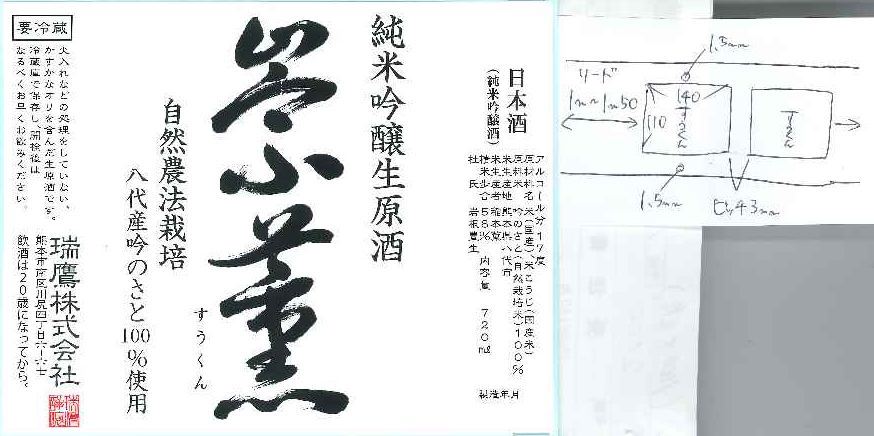 日本酒
(純米吟醸酒)
アルコール分17度
原材料名 米(国産)米こうじ(国産米)
原料米 吟のさと(自然栽培米)100%
米生産地 熊本県八代市
米生産者 稲本薫
精米歩合 58% 内容量 720ml
杜氏 岩根豊生
製造年月
純米吟醸生原酒
崇薫
すうくん
自然農法栽培
八代産吟のさと100%使用
要冷蔵
火入れなどの処理をしていない、
かすかなオリを含んだ生原酒です。
冷蔵庫で保存し、開栓後は
なるべくお早くお飲みください。
瑞鷹株式会社
熊本市南区川尻四丁目六-六七
飲酒は20歳になってから。
1.5mm
リード
1m~1m50
140
110
すうくん
すうくん
1.5mm
ピッチ3mm